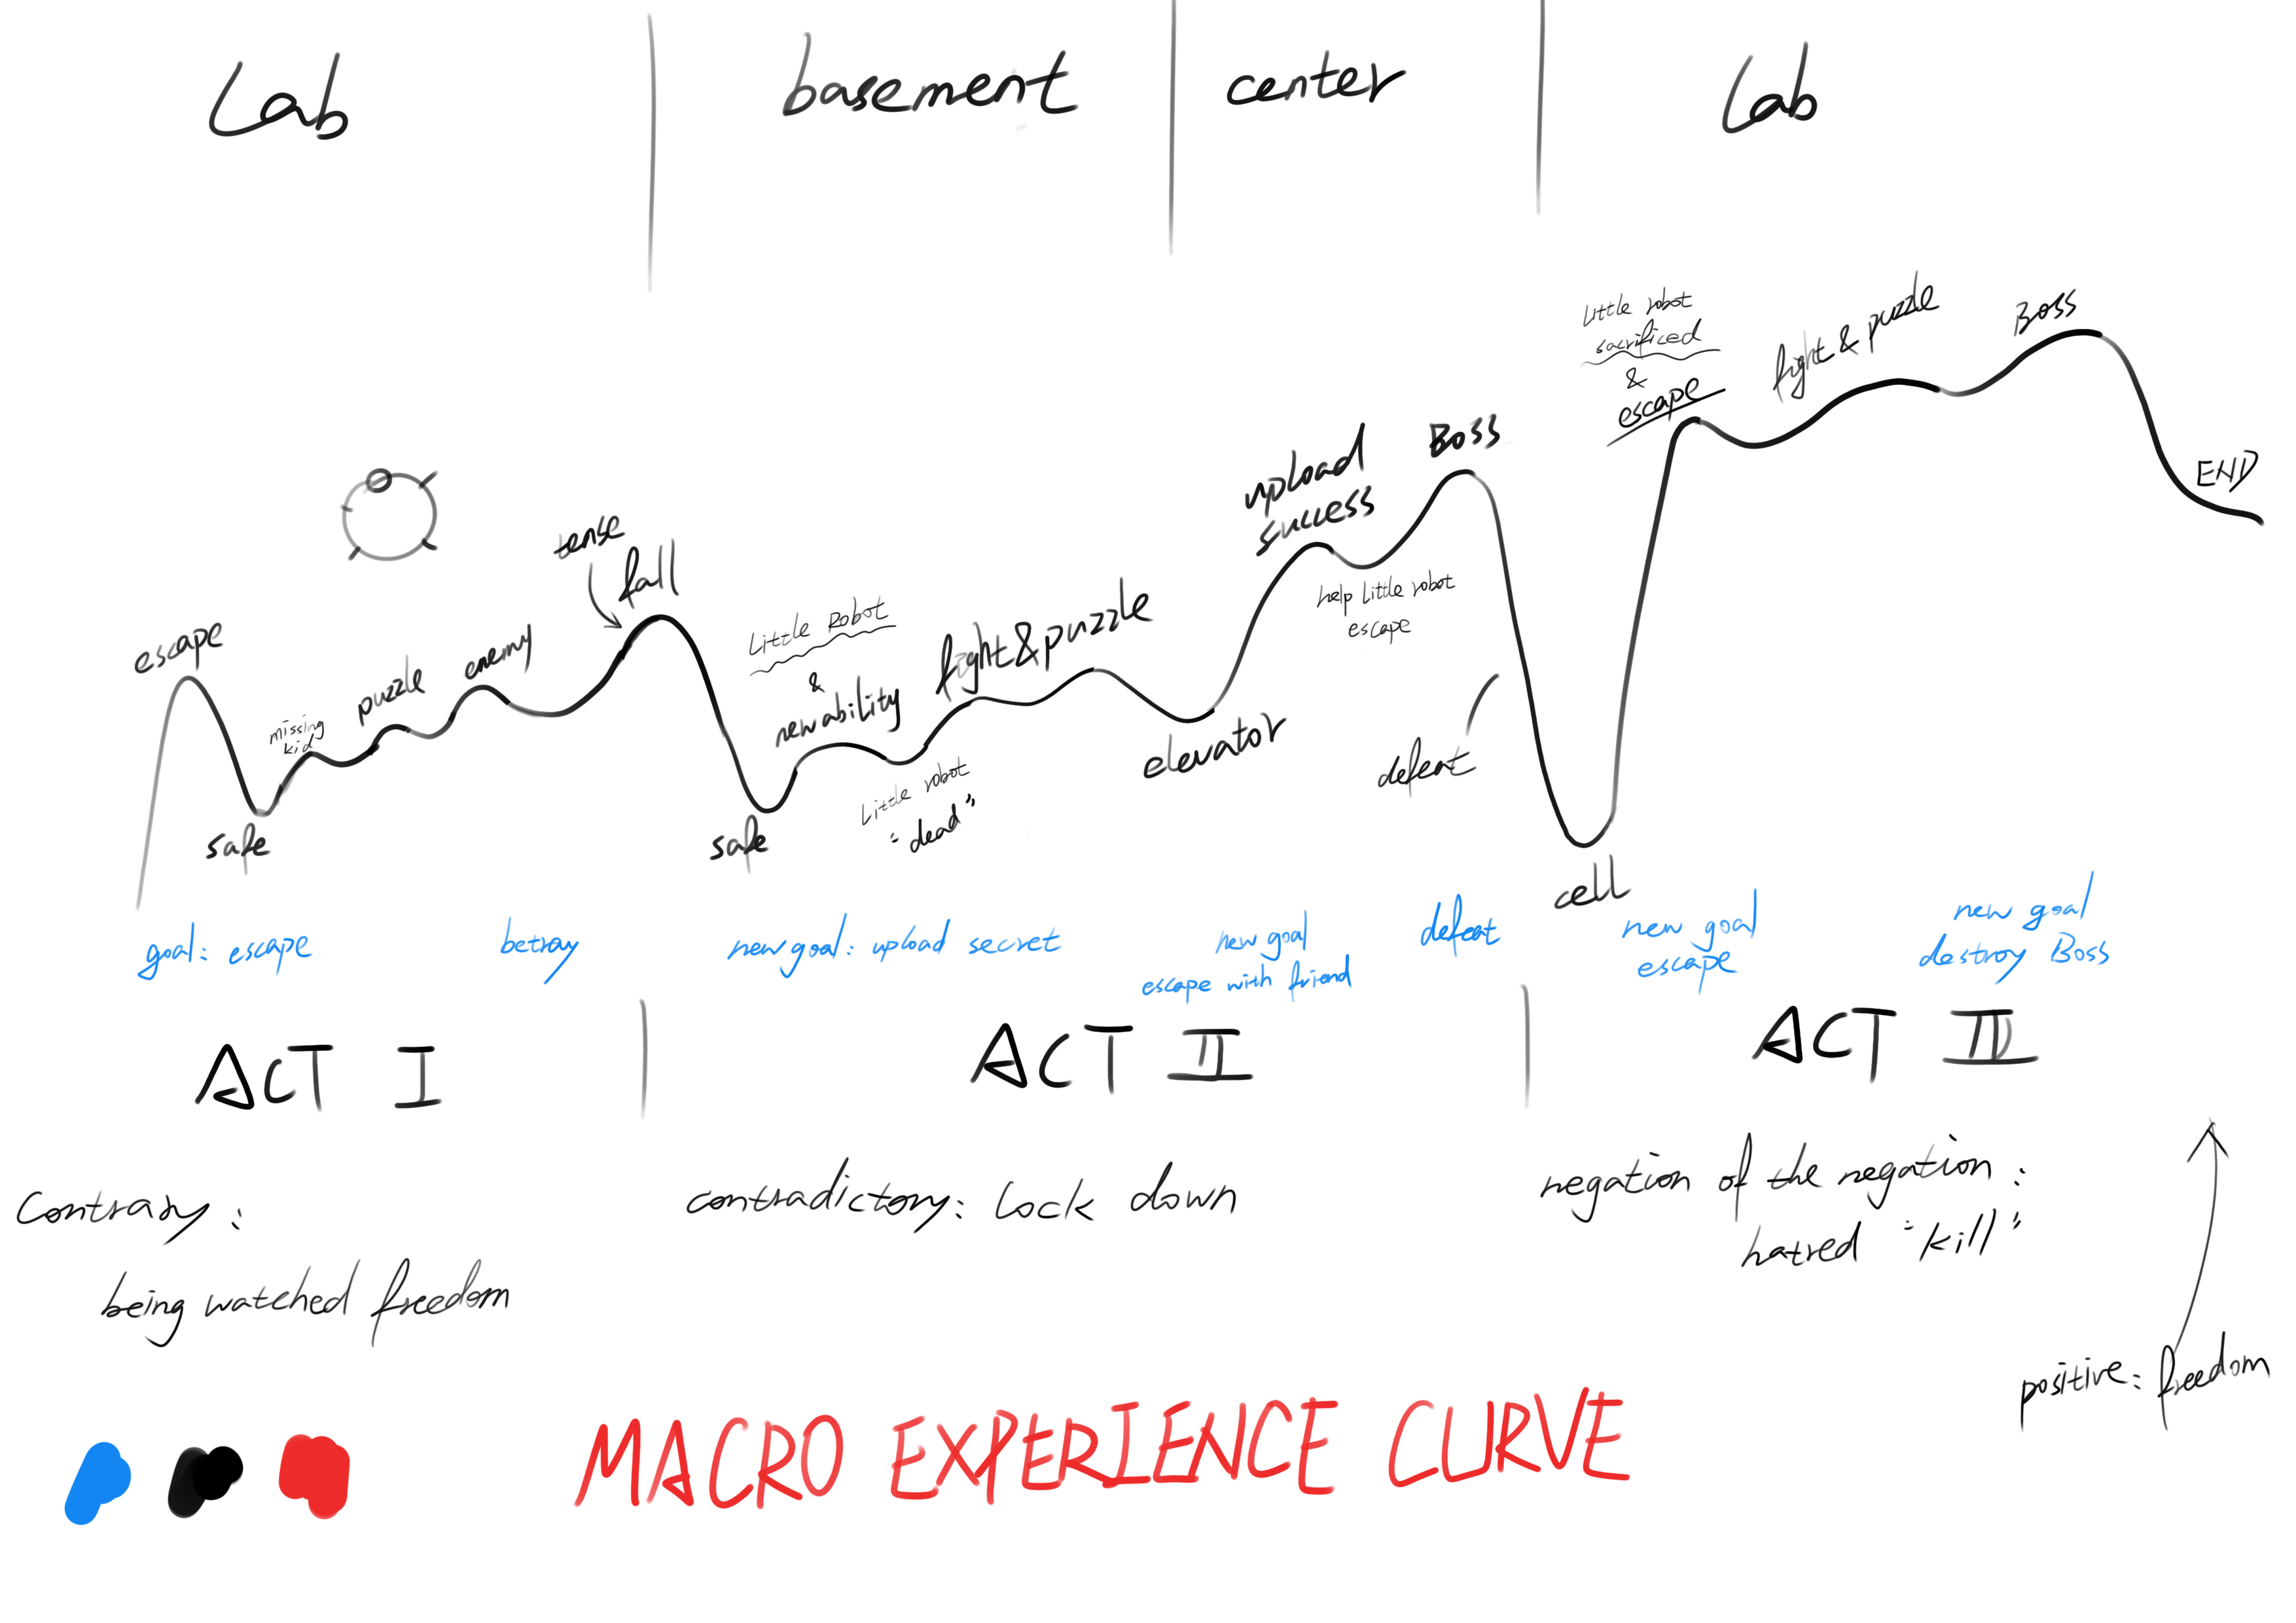 Lab
basement
center
Lab
escape
safe
missing
kid
puzzle
enemy
tense
fall
safe
Little Robot
&
new ability
Little robot
"dead"
fight & puzzle
elevator
upload
success
help Little robot
escape
Boss
defeat
cell
Little robot
sacrificed
&
escape
fight & puzzle
Boss
END
goal: escape
betray
new goal: upload secret
new goal
escape with friend
defeat
new goal
escape
new goal
destroy Boss
ACT I
ACT II
ACT III
Contrary:
being watched freedom
contradictory: Lock down
negation of the negation:
hatred "kill"
positive: freedom
MACRO EXPERIENCE CURVE